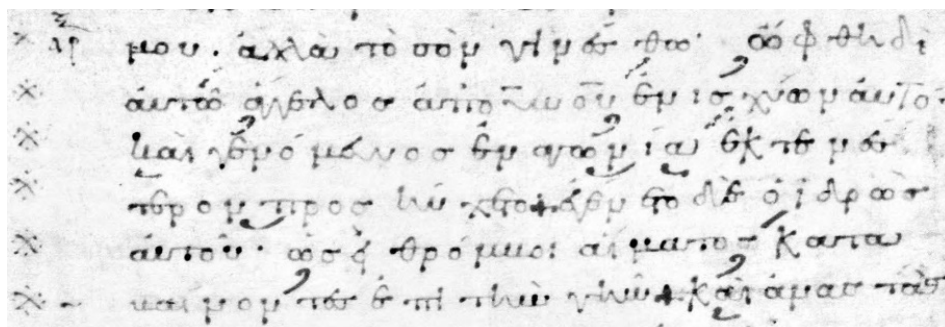 μου. ἀλλὰ τὸ σὸν γινέσθω. ὤφθη δὲ
αὐτῶ ἄγγελος ἀπ οὐνοῦ ἐνισχύων αὐτὸν
καὶ γενόμενος ἐν ἀγωνία ἐκτενέσ
τερον προσηύχετο + ἐγένετο δὲ ὁ ἱδρὼς
αὐτοῦ. ὡσεὶ θρόμβοι αἵματος κατα
βαίνοντες ἐπὶ τὴν γῆν + καὶ ἀναστὰς